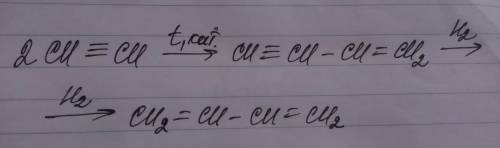 2 CH ≡ CH t, кат. → CH ≡ CH – CH = CH₂ H₂ →
H₂ → CH₂ = CH – CH = CH₂